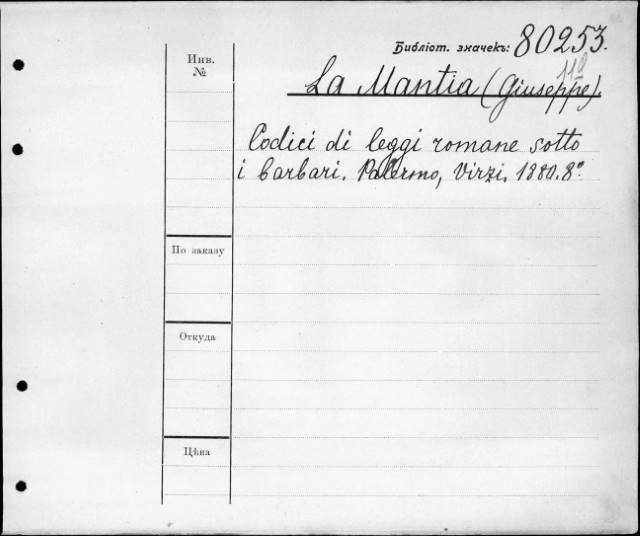 Библіот. значекъ: 80253.
119
Инв.
№
La Mantia (Giuseppe).
Codici di leggi romane sotto
i barbari. Palermo, Virzi. 1880. 8°
По заказу
Откуда
Цѣна